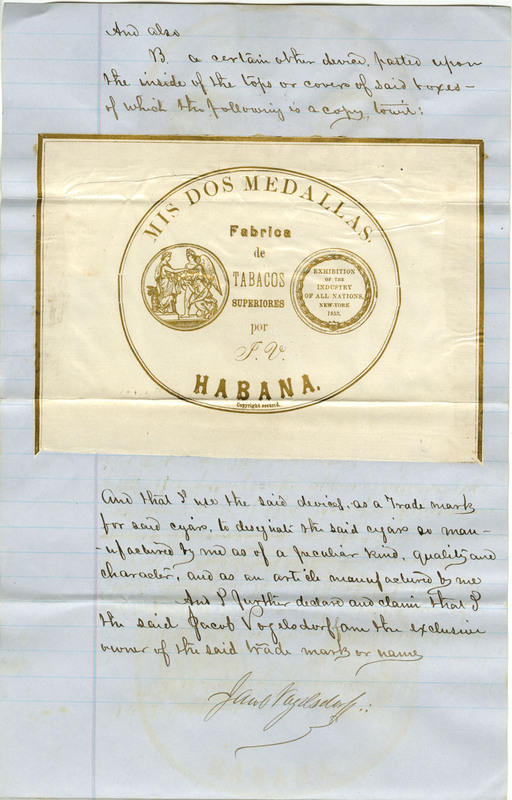 And also
B. a certain other device, pasted upon
the inside of the tops or covers of said boxes -
of which the following is a copy, towit:
MIS DOS MEDALLAS.
Fabrica
de
TABACOS
SUPERIORES
por
J. V.
HABANA.
Copyright secured.
EXHIBITION
OF THE
INDUSTRY
OF ALL NATIONS,
NEW-YORK
1853.
And that I use the said devices, as a Trade mark
for said cigars, to designate the said cigars so man-
-ufactured by me as of a peculiar kind, quality and
character, and as an article manufactured by me
And I further declare and claim that I
the said Jacob Vogelsdorff am the exclusive
owner of the said trade mark or name
Jacob Vogelsdorff